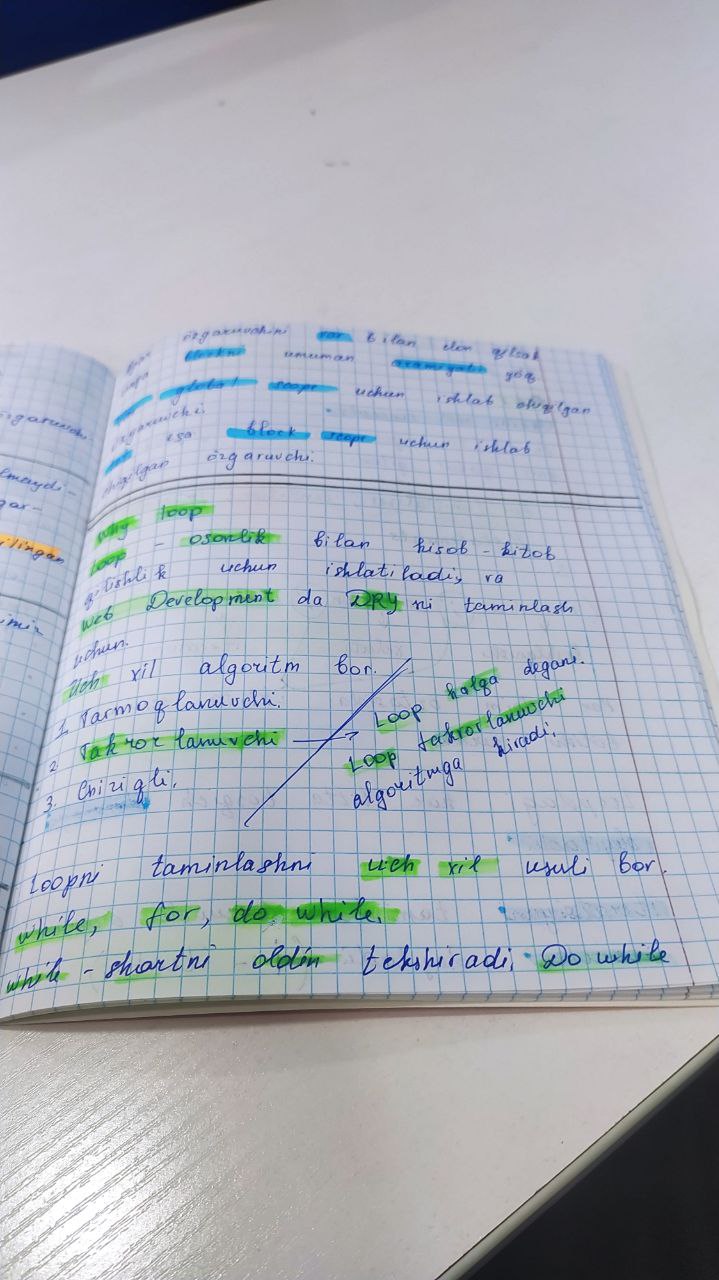 garuvchi
lmaydi-
gar-
ilingan
imiz
o'zgaruvchini var bilan elon qilsak
unga blockni umuman axamiyati yóq
var global scope uchun ishlab chiqilgan
o'zgaruvchi.
esa block scope uchun ishlab
chiqilgan o'zgaruvchi.
Why loop
Loop - osonlik bilan hisob-kitob
qilishlik uchun ishlatiladi, va
Web Development da DRY ni taminlash
uchun.
Uch xil algoritm bor.
1. Tarmoqlanuvchi.
2. Takrorlanuvchi →
3. Chiziqli.
Loop halqa degani.
Loop takrorlanuvchi
algoritmga kiradi.
Loopni taminlashni uch xil usuli bor.
while, for, do while.
while - shartni oldin tekshiradi. Do while